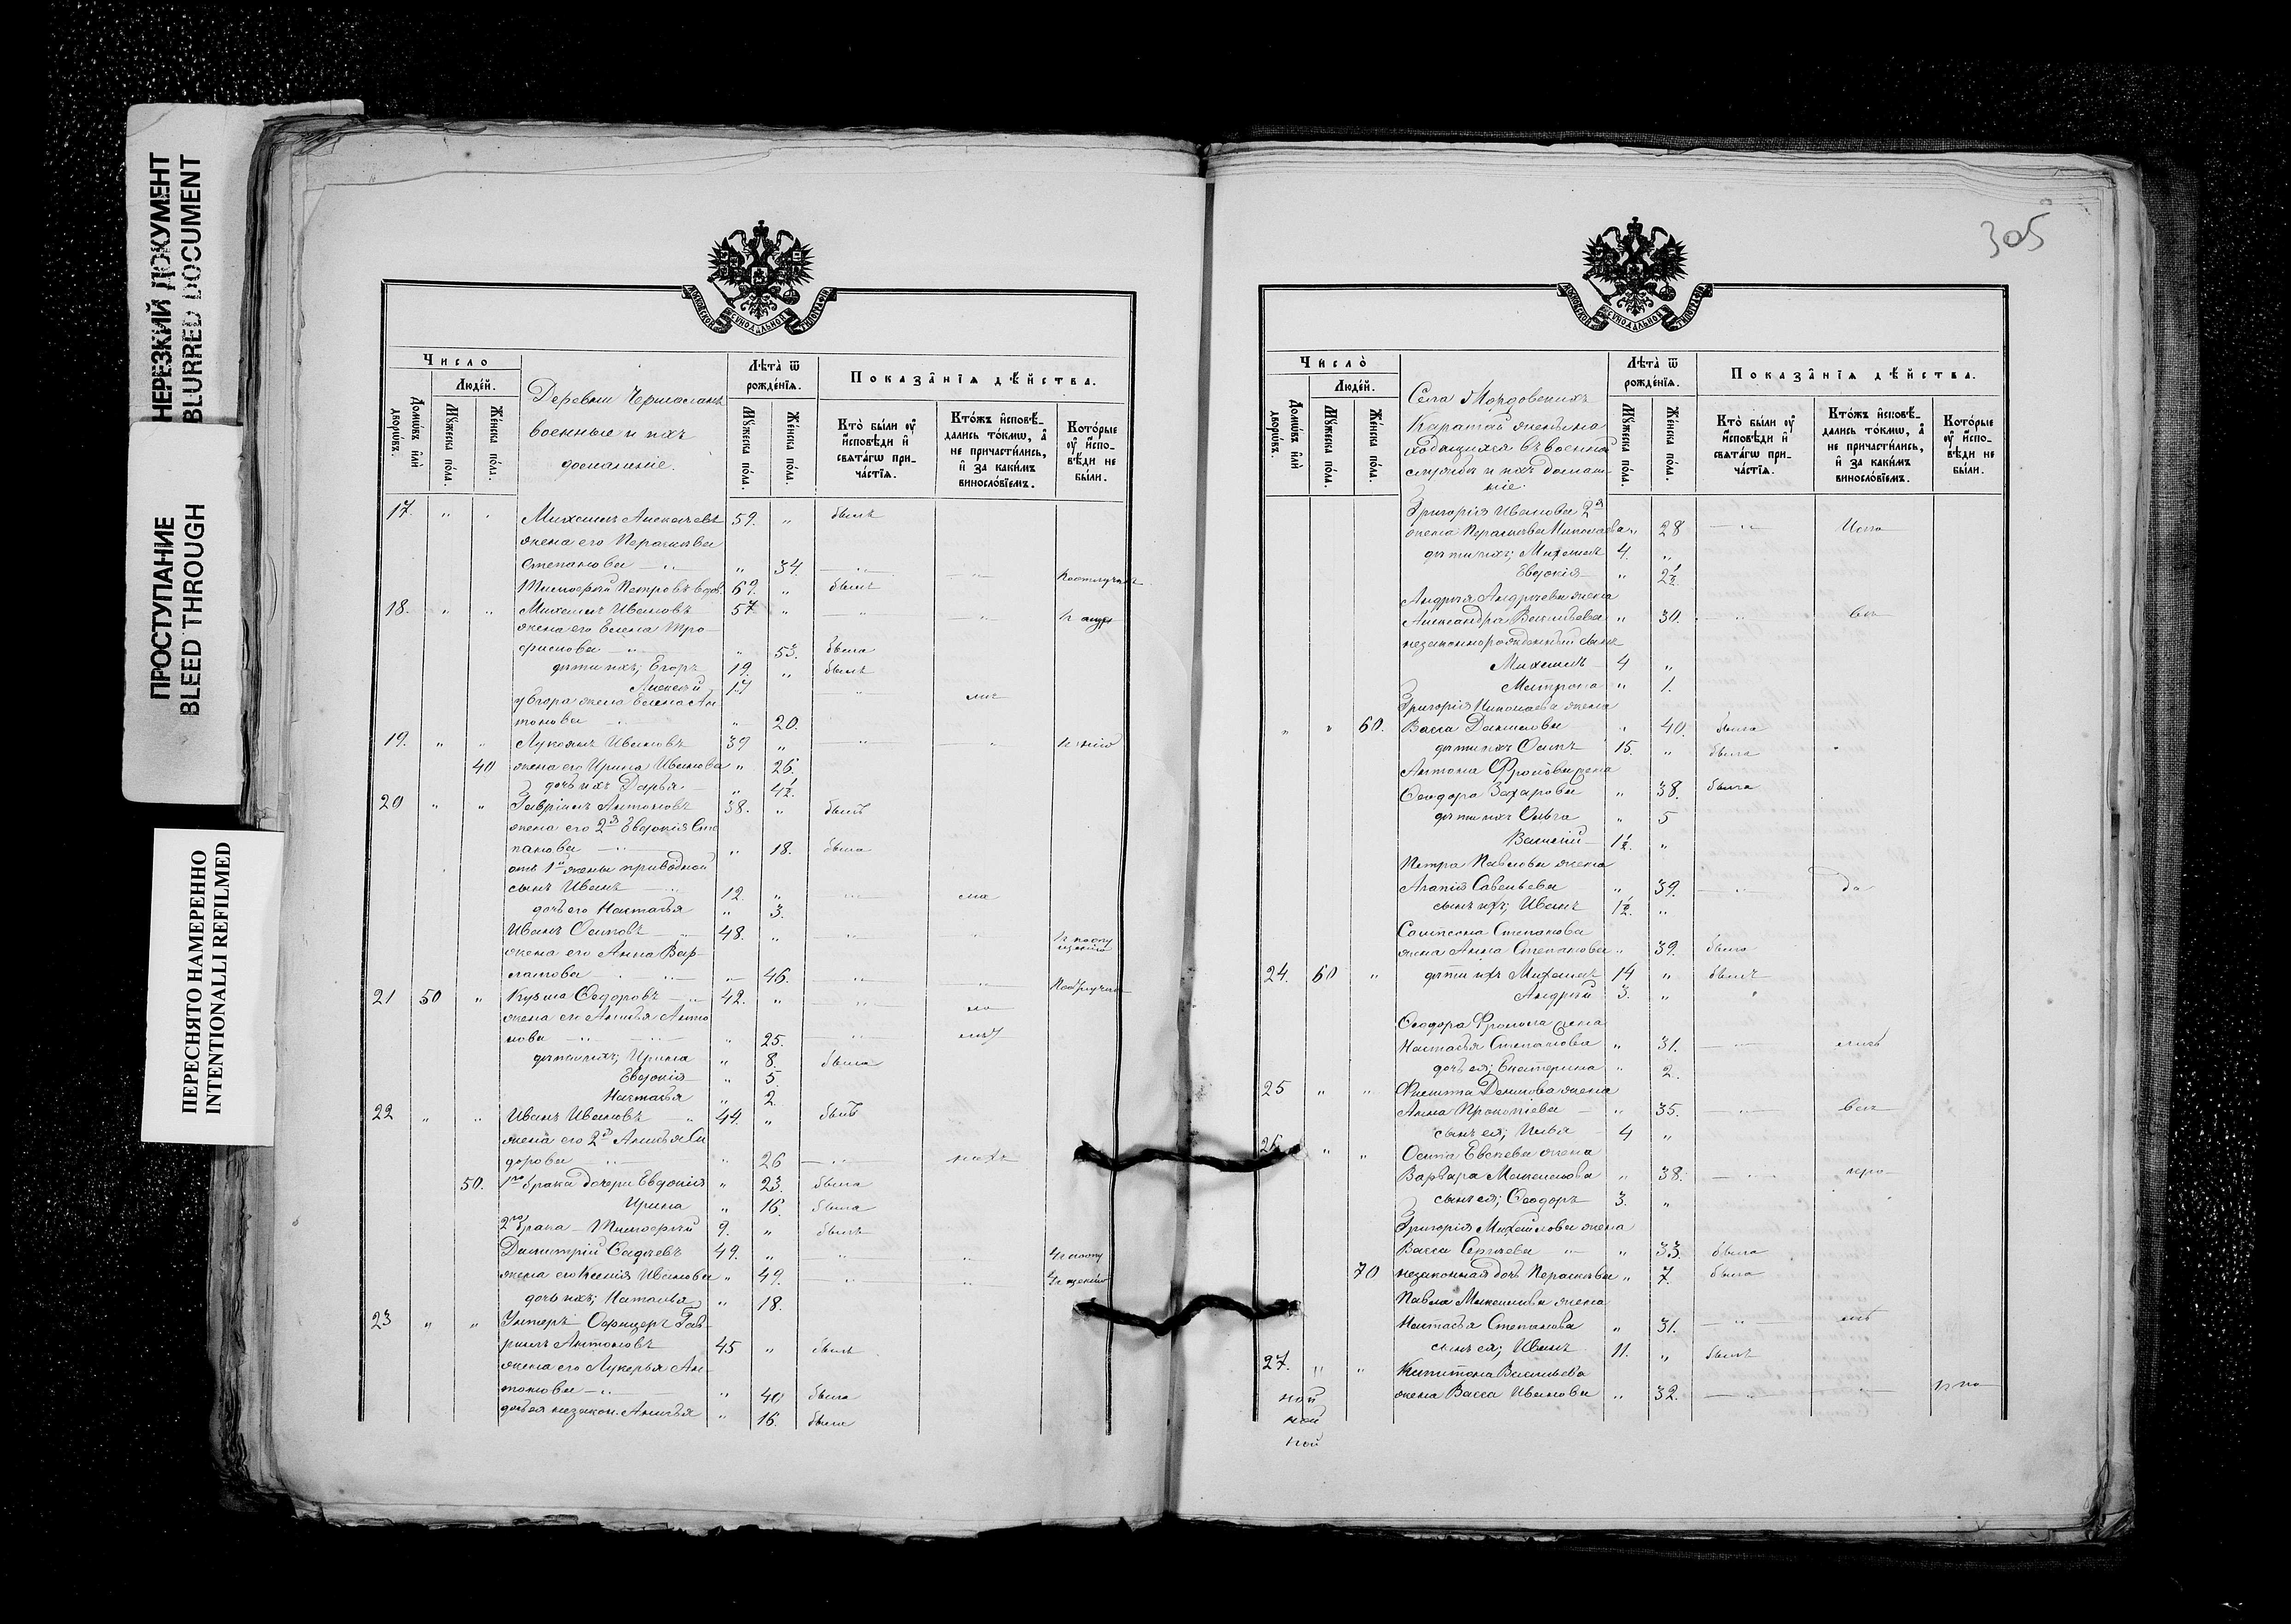 НЕРЕЗКИЙ ДОКУМЕНТ
BLURRED DOCUMENT
ПРОСТУПАНИЕ
BLEED THROUGH
ПЕРЕСНЯТО НАМЕРЕННО
INTENTIONALLI REFILMED
МОСКОВСКОЙ СѴНОДАЛЬНОЙ ТИПОГРАФІИ
Число
Людей.
Домѡвъ или дворѡвъ.
Мꙋжеска пола.
Женска пола.
Деревни
военные и ихъ
домашніе.
Лѣта ѿ рожденїѧ.
Мꙋжеска пола.
Женска пола.
Показанїѧ дѣйства.
Кто были оу исповѣди и свѧтагѡ причастїѧ.
Ктожъ исповѣдались токмѡ, а не причастились, и за какимъ винословїемъ.
Которые оу исповѣди не были.
17. Михаилъ Алексѣевъ 59. былъ
жена его Параскева
Степанова 34.
Тимоѳей Петровъ вдов. 69. былъ
18. Михаилъ Ивановъ 57
жена его Елена Тро-
фимова 53. была
дѣти ихъ; Егоръ 19. былъ
Алексѣй 17
у Егора жена Елена Ан-
тонова 20.
19. Лукоянъ Ивановъ 39
40 жена его Ирина Иванова 26.
дочь ихъ Дарья 4½.
20 Гавріилъ Антоновъ 38. былъ
жена его 2я Евдокія Сте
панова 18. была
отъ 1й жены приводной
сынъ Иванъ 12.
дочь его Настасья 3.
Иванъ Осиповъ 48.
жена его Анна Вар-
ламова 46.
21 50 Кузьма Ѳедоровъ 42.
жена его Анисья Анто
нова 25.
дѣти ихъ; Ирина 8. была
Евдокія 5.
Настасья 2.
22 Иванъ Ивановъ 44. былъ
жена его 2я Анисья Си
дорова 26
50. 1го брака дочери Евдокія 23. была
Ирина 16. была
2го брака Тимоѳей 9. былъ
Димитрій Ѳадѣевъ 49.
жена его Ксенія Иванова 49.
дочь ихъ; Наталья 18.
23 Унтеръ Офицеръ Гав-
ріилъ Антоновъ 45 былъ
жена его Лукерья Ан-
тонова 40 была
дочь ея незакон. Анисья 16. была
305
МОСКОВСКОЙ СѴНОДАЛЬНОЙ ТИПОГРАФІИ
Число
Людей.
Домѡвъ или дворѡвъ.
Мꙋжеска пола.
Женска пола.
Села Мордовскихъ
Каратай жены на
ходящихся въ военной
службѣ и ихъ домаш
ніе.
Лѣта ѿ рожденїѧ.
Мꙋжеска пола.
Женска пола.
Показанїѧ дѣйства.
Кто были оу исповѣди и свѧтагѡ причастїѧ.
Ктожъ исповѣдались токмѡ, а не причастились, и за какимъ винословїемъ.
Которые оу исповѣди не были.
Григорія Иванова 2я
жена Параскева Николаева 28
дѣти ихъ; Михаилъ 4.
Евдокія 2½.
Андрея Андреева жена
Александра Васильева 30.
незаконнорожденный сынъ
Михаилъ 4
Матрона 1.
Григорія Николаева жена
60. Васса Данилова 40. была
дѣти ихъ Осипъ 15. была
Антона Фролова жена
Ѳеодора Захарова 38. была
дѣти ихъ Ольга 5
Василій 1½.
Петра Павлова жена
Агапія Савельева 39.
сынъ ихъ; Иванъ 1½.
Сампсона Степанова
жена Анна Степанова 39. была
24. 60 дѣти ихъ Михаилъ 14 былъ
Андрей 3.
Ѳеодора Фролова жена
Настасья Степанова 31.
дочь ея; Екатерина 2.
25 Филиппа Данилова жена
Анна Прокопіева 35.
сынъ ея; Илья 4
26 Осипа Евсѣева жена
Варвара Максимова 38.
сынъ ея; Ѳеодоръ 3.
Григорія Михайлова жена
Васса Сергѣева 33. была
70 незаконная дочь Параскева 7. была
Павла Максимова жена
Настасья Степанова 31.
сынъ ея; Иванъ 11. былъ
27. Капитона Васильева
жена Васса Иванова 32.
ной
ной
ной